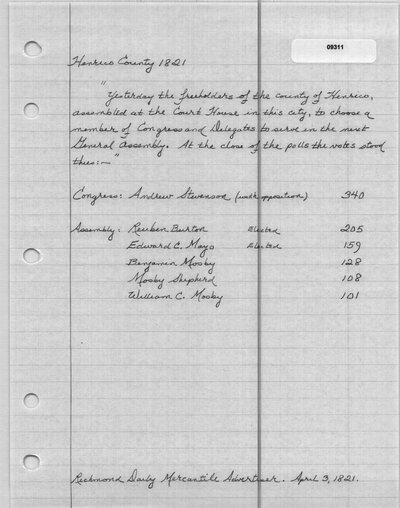 09311
Henrico County 1821
"Yesterday the freeholders of the county of Henrico,
assembled at the Court House in this city, to choose a
member of Congress and Delegates to serve in the next
General Assembly. At the close of the polls the votes stood
thus:—"
Congress: Andrew Stevenson (without opposition) 340
Assembly: Reuben Burton Elected 205
Edward C. Mayo Elected 159
Benjamin Mosby 128
Mosby Shepherd 108
William C. Mosby 101
Richmond Daily Mercantile Advertiser. April 3, 1821.